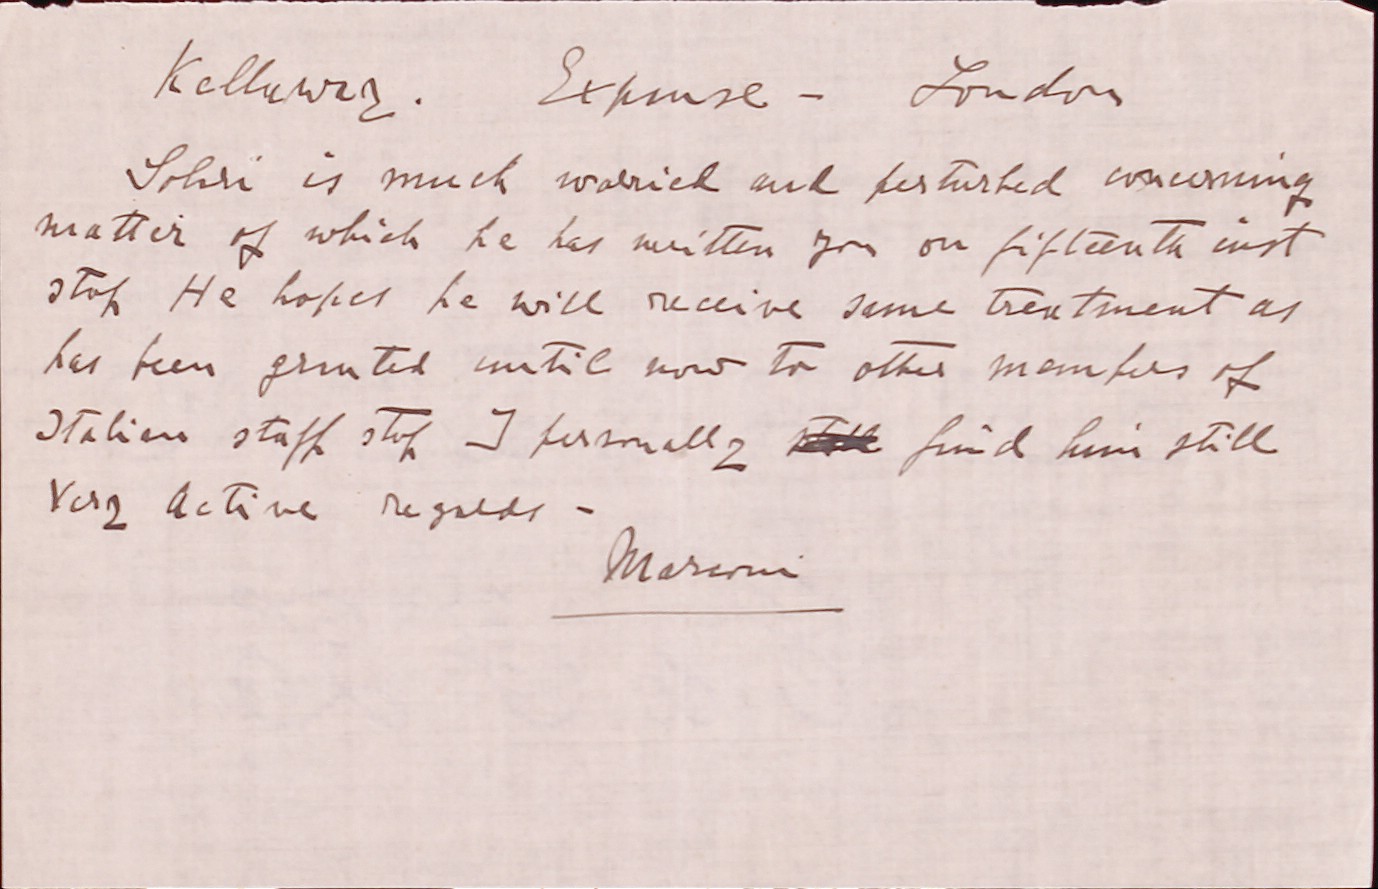 Kellaway. Expanse - London
Solari is much worried and perturbed concerning
matter of which he has written you on fifteenth inst
stop He hopes he will receive same treatment as
has been granted until now to other members of
Italian staff stop I personally find him still
very active regards -
Marconi